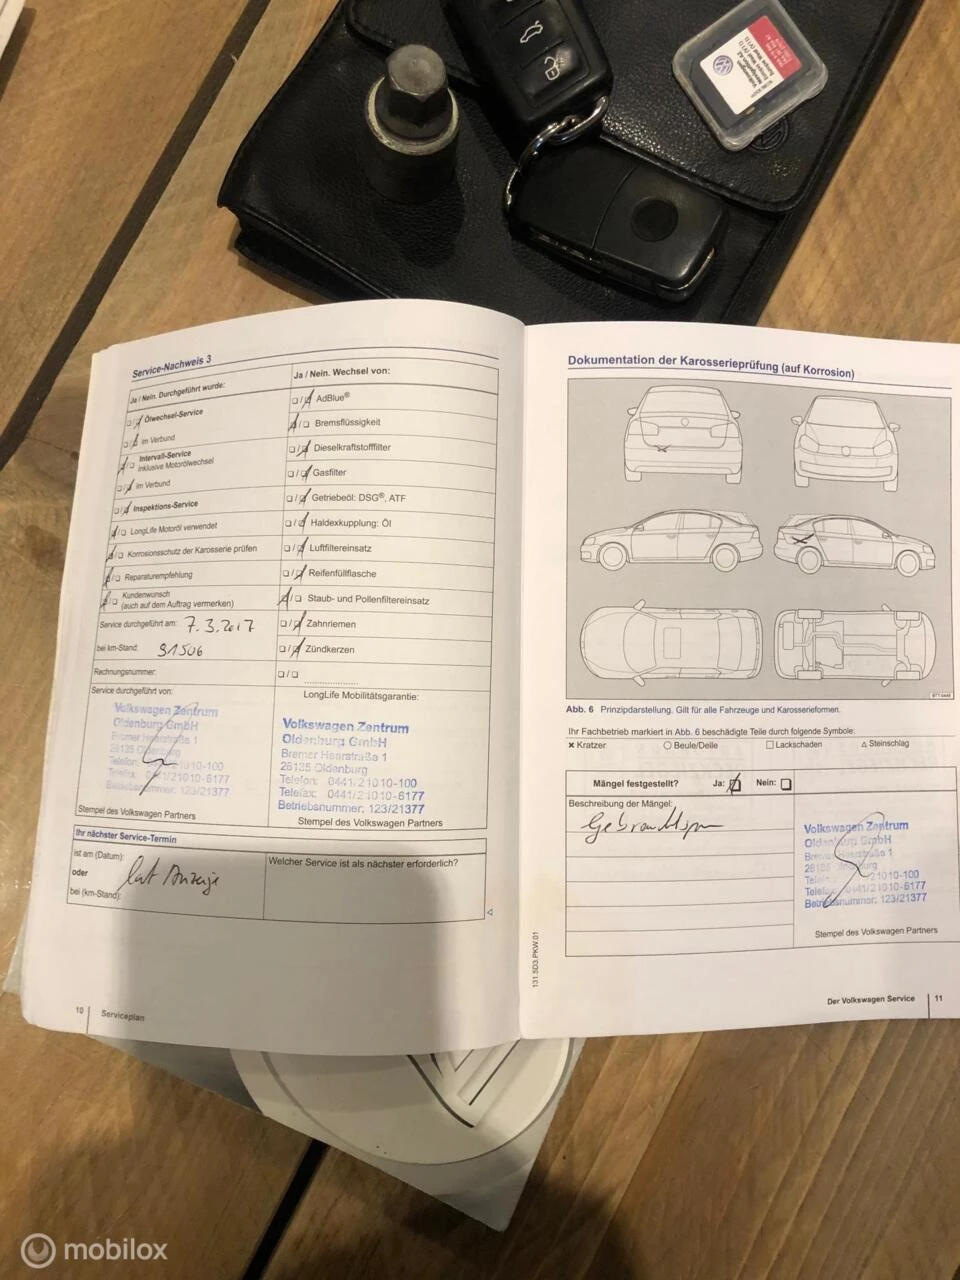 Volkswagen AG
Navigation AZ
Europa West (V11)
Europe West (V11)
Service-Nachweis 3
Ja / Nein. Durchgeführt wurde:
Ölwechsel-Service
im Verbund
Intervall-Service
inklusive Motorölwechsel
im Verbund
Inspektions-Service
LongLife Motoröl verwendet
Korrosionsschutz der Karosserie prüfen
Reparaturempfehlung
Kundenwunsch
(auch auf dem Auftrag vermerken)
Service durchgeführt am: 7.3.2017
bei km-Stand: 31506
Rechnungsnummer:
Service durchgeführt von:
Volkswagen Zentrum
Oldenburg GmbH
Bremer Heerstraße 1
26135 Oldenburg
Telefon: 0441/21010-100
Telefax: 0441/21010-6177
Betriebsnummer: 123/21377
Stempel des Volkswagen Partners
Ja / Nein. Wechsel von:
AdBlue®
Bremsflüssigkeit
Dieselkraftstofffilter
Gasfilter
Getriebeöl: DSG®, ATF
Haldexkupplung: Öl
Luftfiltereinsatz
Reifenfüllflasche
Staub- und Pollenfiltereinsatz
Zahnriemen
Zündkerzen
LongLife Mobilitätsgarantie:
Volkswagen Zentrum
Oldenburg GmbH
Bremer Heerstraße 1
26135 Oldenburg
Telefon: 0441/21010-100
Telefax: 0441/21010-6177
Betriebsnummer: 123/21377
Stempel des Volkswagen Partners
Ihr nächster Service-Termin
ist am (Datum):
oder
bei (km-Stand):
laut Anzeige
Welcher Service ist als nächster erforderlich?
10 Serviceplan
Dokumentation der Karosserieprüfung (auf Korrosion)
Abb. 6 Prinzipdarstellung. Gilt für alle Fahrzeuge und Karosserieformen.
Ihr Fachbetrieb markiert in Abb. 6 beschädigte Teile durch folgende Symbole:
Kratzer Beule/Delle Lackschaden Steinschlag
Mängel festgestellt? Ja: Nein:
Beschreibung der Mängel:
Gebrauchtspuren
Volkswagen Zentrum
Oldenburg GmbH
Bremer Heerstraße 1
26135 Oldenburg
Telefon: 0441/21010-100
Telefax: 0441/21010-6177
Betriebsnummer: 123/21377
Stempel des Volkswagen Partners
131.5D3.PKW.01
Der Volkswagen Service 11
mobilox